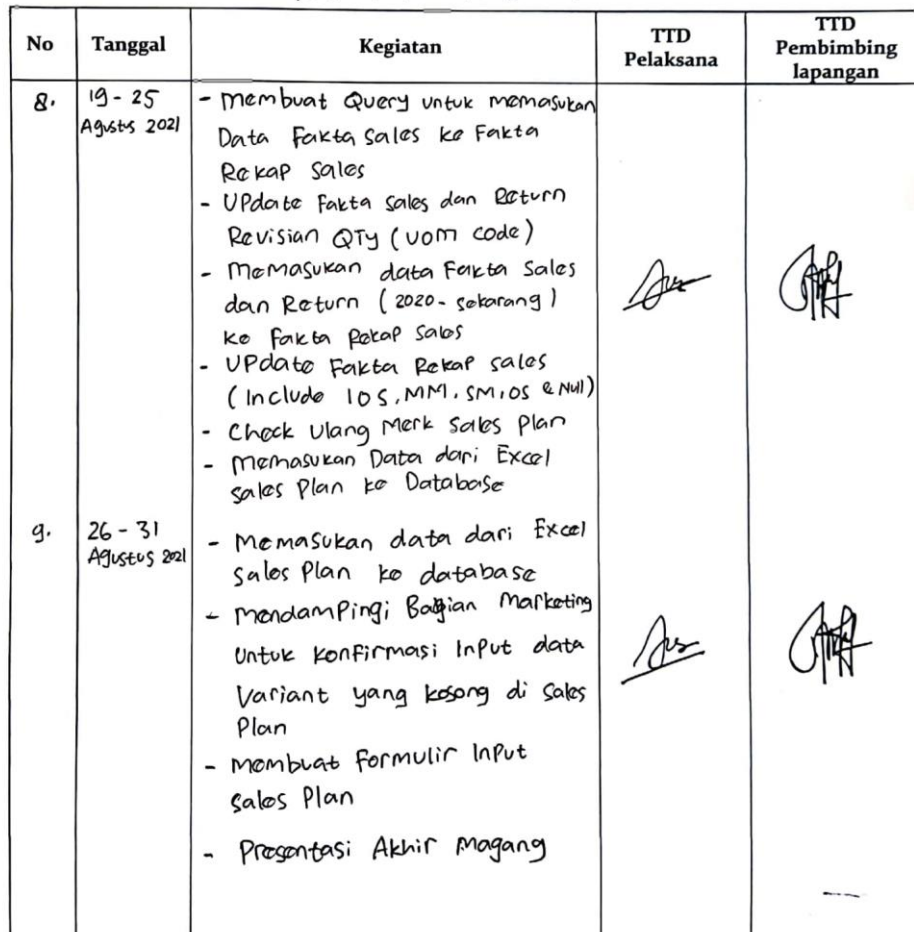 No Tanggal Kegiatan TTD Pelaksana TTD Pembimbing lapangan
8. 19 - 25 Agustus 2021
- Membuat Query untuk memasukan
Data Fakta Sales ke Fakta
Rekap Sales
- UPdate Fakta sales dan Return
Revisian QTy (UOM code)
- Memasukan data Fakta Sales
dan Return (2020 - sekarang)
ke Fakta Rekap Sales
- UPdate Fakta Rekap sales
(Include IOS, MM, SM, OS & Null)
- Check Ulang Merk Sales Plan
- Memasukan Data dari Excel
sales Plan ke Database
9. 26 - 31 Agustus 2021
- Memasukan data dari Excel
Sales Plan ke database
- Mendampingi Bagian Marketing
Untuk Konfirmasi Input data
Variant yang kosong di Sales
Plan
- Membuat Formulir Input
Sales Plan
- Presentasi Akhir Magang